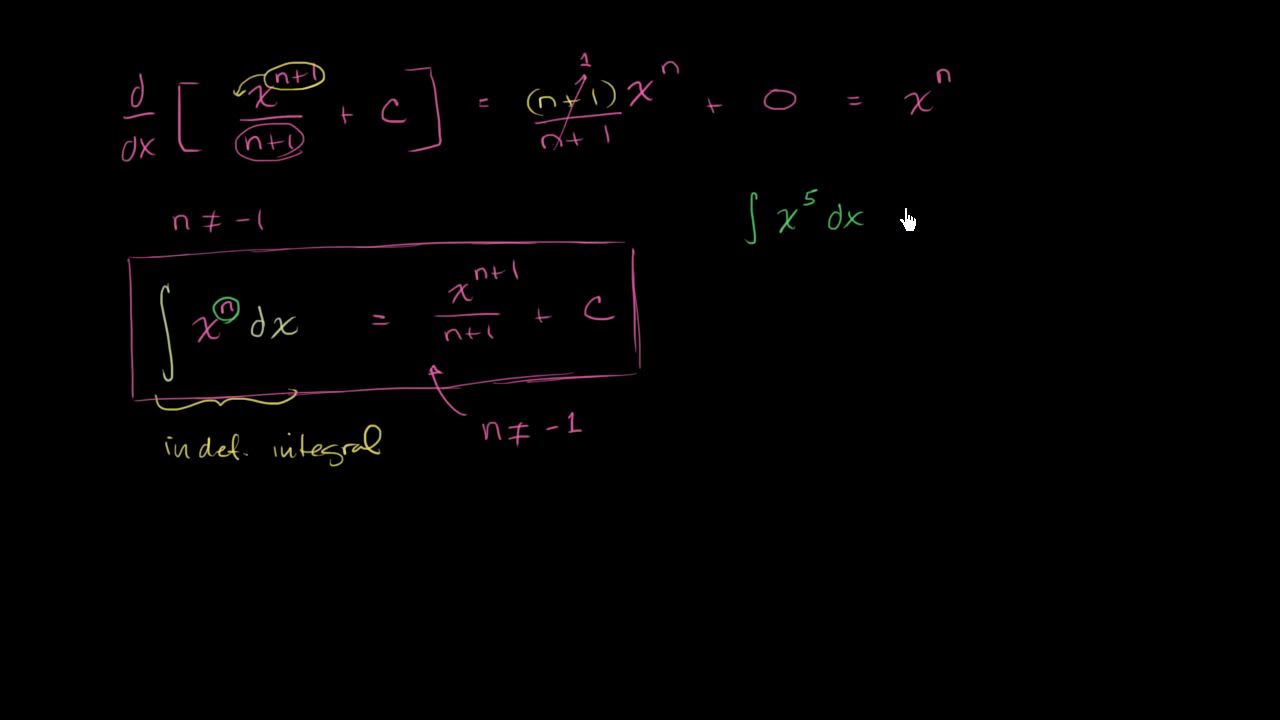 d/dx [ x^(n+1)/(n+1) + C ] = (n+1)x^n/(n+1) 1 + 0 = x^n
n ≠ -1
∫ x^5 dx
∫ x^n dx = x^(n+1)/(n+1) + C
n ≠ -1
indef. integral